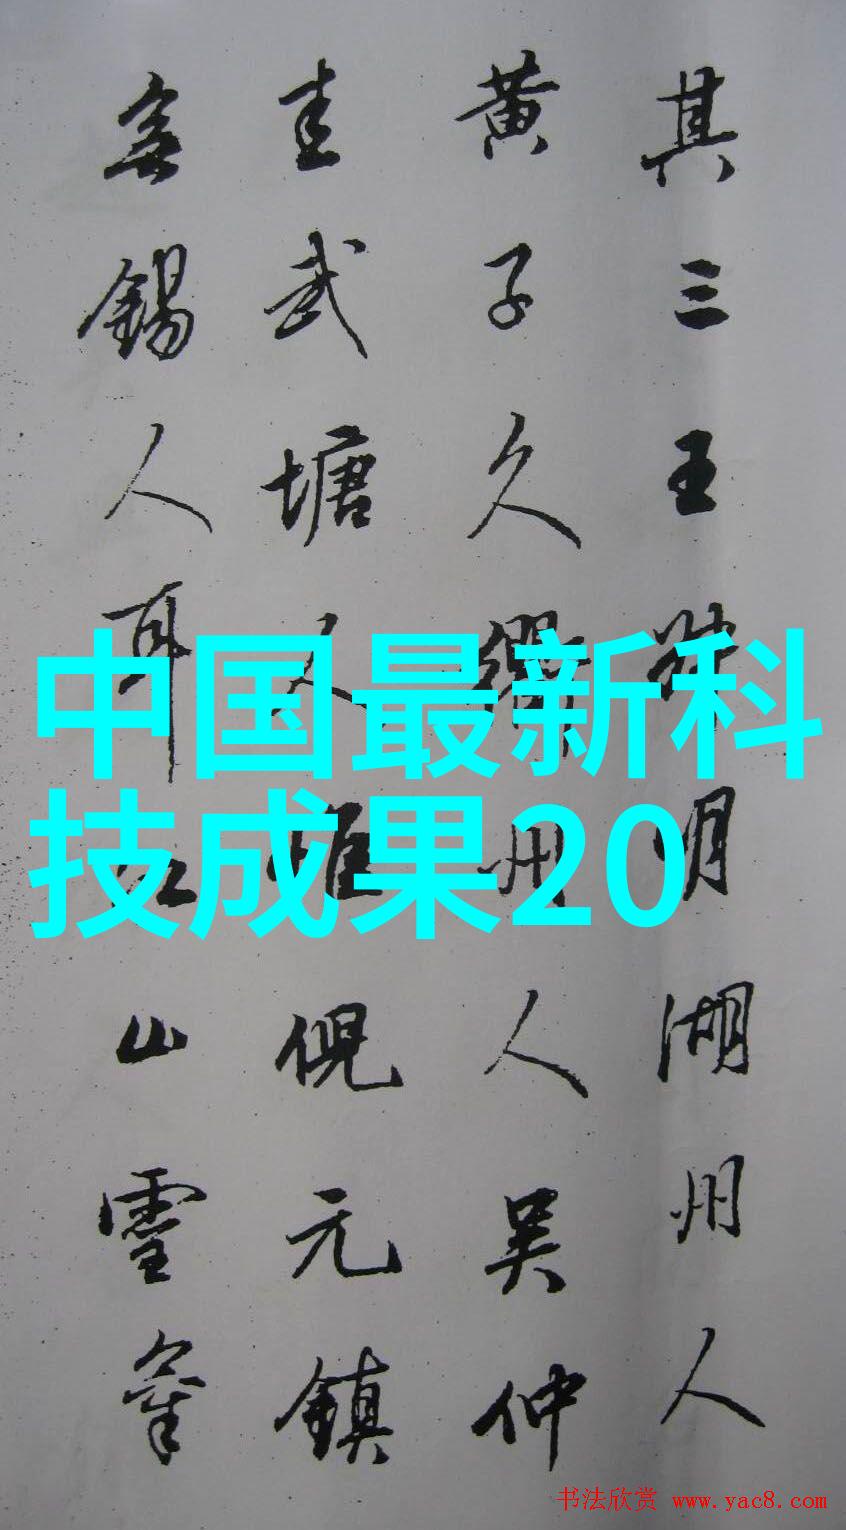 其三王叔明湖州人
黄子久衢州人吴仲
圭武塘人惟倪元鎮
無錫人耳江山靈氣
中国最新科
技成果20
书法欣赏 www.yac8.com